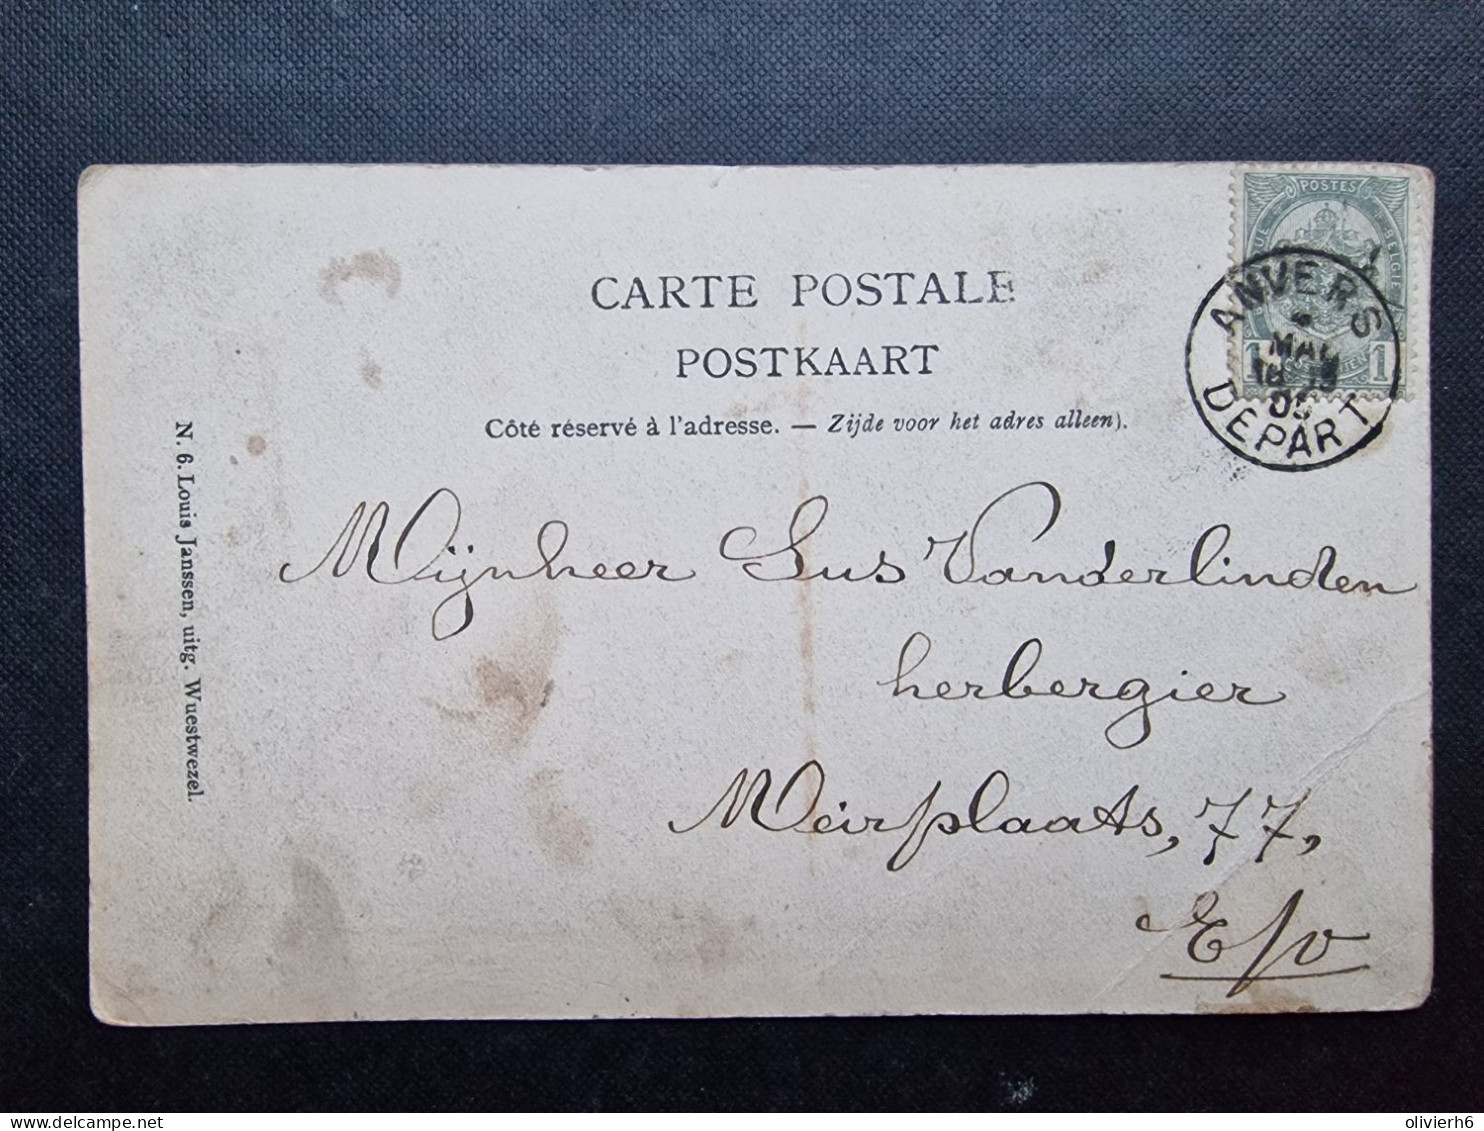 CARTE POSTALE
POSTKAART
Côté réservé à l'adresse. — Zijde voor het adres alleen).
POSTES
BELGIQUE
1 1
ANVERS
05
DEPART
N. 6. Louis Janssen, uitg. Wuestwezel.
Mijnheer Sus Vanderlinden
herbergier
Meirplaats, 77,
E/v
delcampe.net
olivierh6